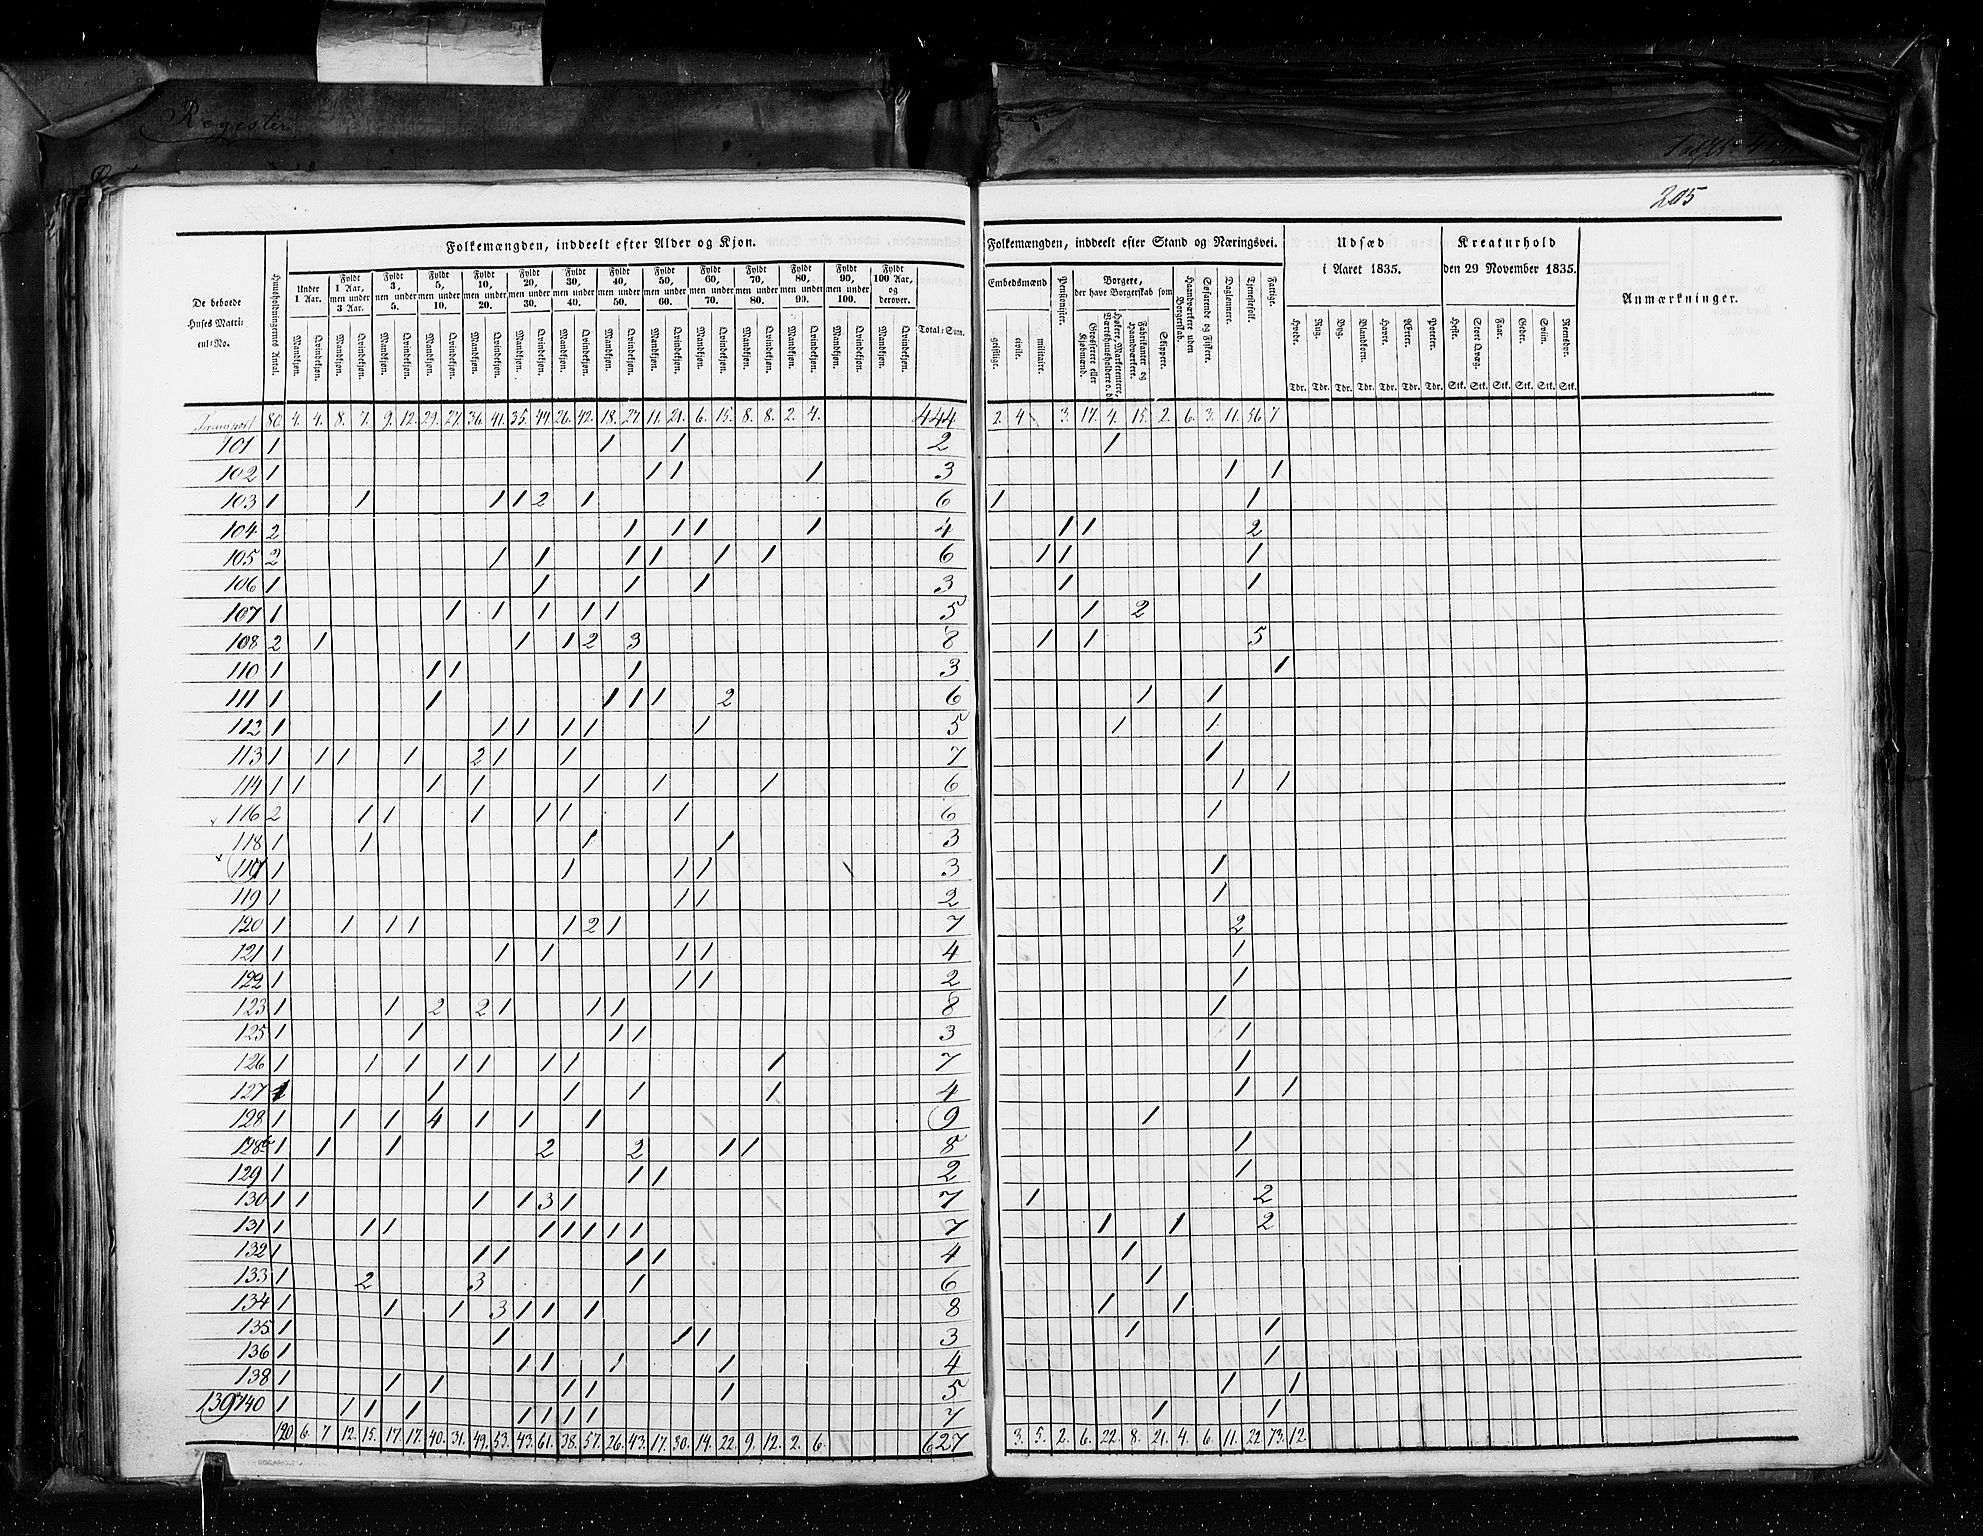 Register
205
Folkemængden, inddeelt efter Alder og Kjøn.
De beboede Huses Matrikul=No.
Huusholdningernes Antal.
Under 1 Aar.
Fyldt 1 Aar, men under 3 Aar.
Fyldt 3, men under 5.
Fyldt 5, men under 10.
Fyldt 10, men under 20.
Fyldt 20, men under 30.
Fyldt 30, men under 40.
Fyldt 40, men under 50.
Fyldt 50, men under 60.
Fyldt 60, men under 70.
Fyldt 70, men under 80.
Fyldt 80, men under 90.
Fyldt 90, men under 100.
Fyldt 100 Aar, og derover.
Mandkjøn. Qvindekjøn. Mandkjøn. Qvindekjøn. Mandkjøn. Qvindekjøn. Mandkjøn. Qvindekjøn. Mandkjøn. Qvindekjøn. Mandkjøn. Qvindekjøn. Mandkjøn. Qvindekjøn. Mandkjøn. Qvindekjøn. Mandkjøn. Qvindekjøn. Mandkjøn. Qvindekjøn. Mandkjøn. Qvindekjøn. Mandkjøn. Qvindekjøn. Mandkjøn. Qvindekjøn. Mandkjøn. Qvindekjøn.
Total=Sum.
Folkemængden, inddeelt efter Stand og Næringsvei.
Embedsmænd
geistlige. civile. militaire.
Pensionister.
Borgere, der have Borgerskab som
Grosserere eller Kjøbmænd.
Høkere, Marketentere, Værtshuusholdere o. d.
Fabrikanter og Haandværkere.
Skippere.
Haandværkere uden Borgerskab.
Søfarende og Fiskere.
Dagleiere.
Tjenestefolk.
Fattige.
Udsæd i Aaret 1835.
Hvede. Rug. Byg. Blandkorn. Havre. Ærter. Poteter.
Tdr. Tdr. Tdr. Tdr. Tdr. Tdr. Tdr.
Kreaturhold den 29 November 1835.
Heste. Stort Qvæg. Faar. Geder. Sviin. Rensdyr.
Stk. Stk. Stk. Stk. Stk. Stk.
Anmærkninger.
Transport 80 4. 4. 8. 7. 9. 12. 29. 27. 36. 41. 35. 44. 26. 42. 18. 27. 11. 21. 6. 15. 8. 8. 2. 4. 444 2. 4. 3. 17. 4. 15. 2. 6. 3. 11. 56. 7
101 1 1 1 2 1
102 1 1 1 1 3 1 1
103 1 1 1 1 2 1 6 1 1
104 2 1 1 1 1 4 1 1 2
105 2 1 1 1 1 1 1 6 1 1 1
106 1 1 1 1 3 1 1
107 1 1 1 1 1 1 5 1 2
108 2 1 1 1 2 3 8 1 1 5
110 1 1 1 1 3 1
111 1 1 1 1 1 2 6 1 1
112 1 1 1 1 1 1 5 1 1
113 1 1 1 1 2 1 1 7 1
114 1 1 1 1 1 1 1 6 1 1
116 2 1 1 1 1 1 1 6 1
118 1 1 1 1 3
117 1 1 1 1 3 1
119 1 1 1 2 1
120 1 1 1 1 1 2 1 7 2
121 1 1 1 1 1 4 1
122 1 1 1 2 1
123 1 1 2 2 1 1 1 8 1
125 1 1 1 1 3 1
126 1 1 1 1 1 1 1 1 7 1
127 1 1 1 1 1 4 1 1
128 1 1 1 4 1 1 1 9 1
128b 1 1 1 2 2 1 1 8 1
129 1 1 1 2 1
130 1 1 1 1 3 1 7 1 2
131 1 1 1 1 1 1 1 1 7 1 1 2
132 1 1 1 1 1 4 1
133 1 2 3 1 6 1
134 1 1 1 3 1 1 1 8 1 1
135 1 1 1 1 3 1 1
136 1 1 1 1 1 4 1
138 1 1 1 1 1 1 5 1 1
139 140 1 1 1 1 1 1 1 1 7 1 1
120 6. 7 12. 15. 17. 17. 40. 31. 49. 53. 43. 61. 38. 57. 26. 43. 17. 30. 14. 22. 9. 12. 2. 6. 627 3. 5. 2. 6. 22. 8. 21. 4. 6. 11. 22. 73. 12.